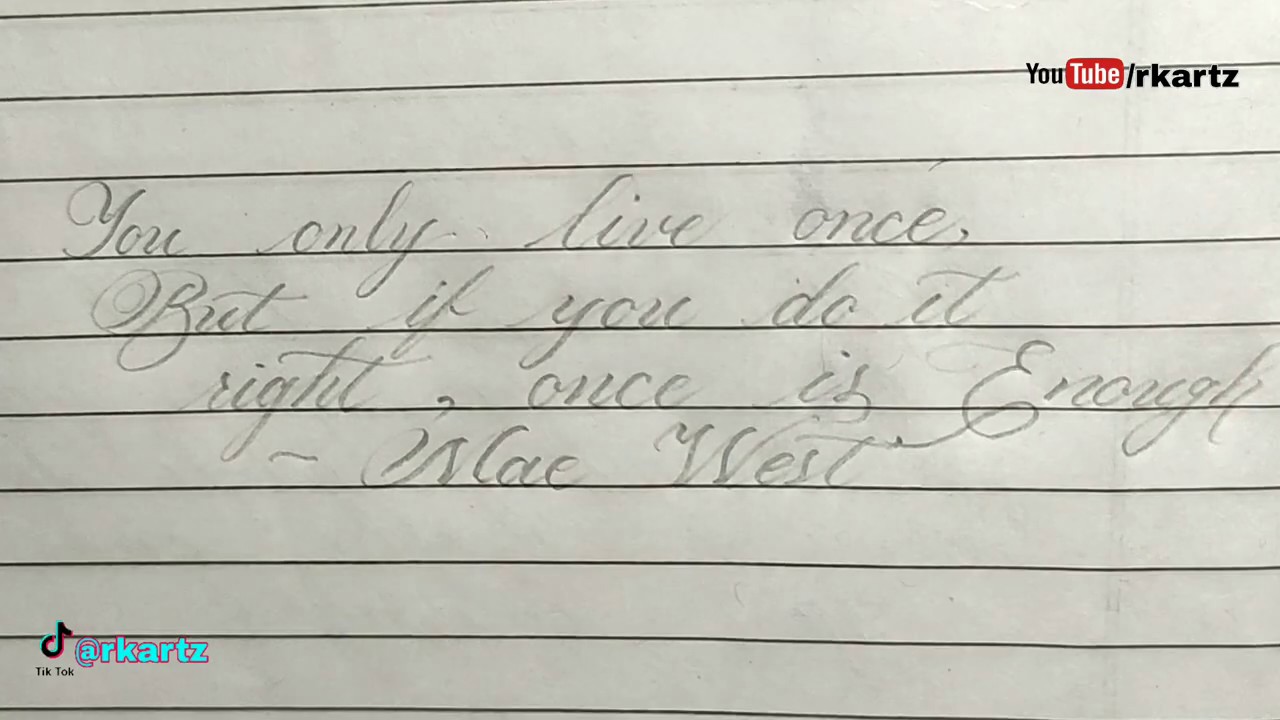 YouTube/rkartz
You only live once,
But if you do it
right, once is Enough
- Mae West
@rkartz
Tik Tok